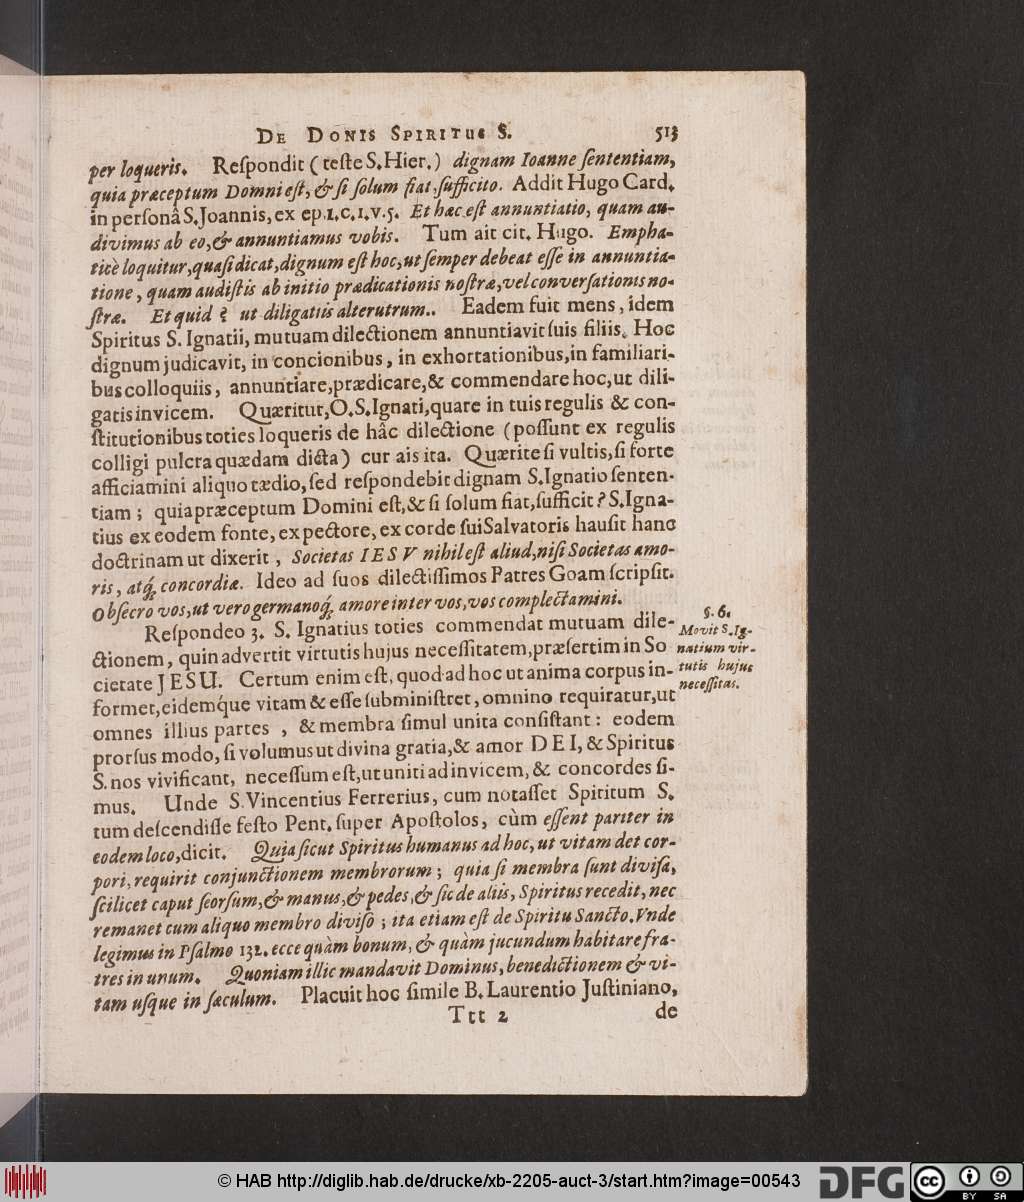 DE DONIS SPIRITUS S. 513
per loqueris. Reſpondit (teſte S. Hier.) dignam Ioanne ſententiam,
quia præceptum Domni eſt, & ſi ſolum fiat, ſufficito. Addit Hugo Card.
in perſonâ S. Joannis, ex ep. 1. c. 1. v. 5. Et hæc eſt annuntiatio, quam au-
divimus ab eo, & annuntiamus vobis. Tum ait cit. Hugo. Empha-
ticè loquitur, quaſi dicat, dignum eſt hoc, ut ſemper debeat eſſe in annuntia-
tione, quam audiſtis ab initio prædicationis noſtræ, vel converſationis no-
ſtræ. Et quid? ut diligatiis alterutrum.. Eadem fuit mens, idem
Spiritus S. Ignatii, mutuam dilectionem annuntiavit ſuis filiis. Hoc
dignum judicavit, in concionibus, in exhortationibus, in familiari-
bus colloquiis, annuntiare, prædicare, & commendare hoc, ut dili-
gatis invicem. Quæritur, O. S. Ignati, quare in tuis regulis & con-
ſtitutionibus toties loqueris de hâc dilectione (poſſunt ex regulis
colligi pulcra quædam dicta) cur ais ita. Quærite ſi vultis, ſi forte
afficiamini aliquo tædio, ſed reſpondebit dignam S. Ignatio ſenten-
tiam; quia præceptum Domini eſt, & ſi ſolum fiat, ſufficit? S. Igna-
tius ex eodem fonte, ex pectore, ex corde ſui Salvatoris hauſit hanc
doctrinam ut dixerit, Societas IESV nihil eſt aliud, niſi Societas amo-
ris, atq́; concordiæ. Ideo ad ſuos dilectiſſimos Patres Goam ſcripſit.
Obſecro vos, ut vero germanoq́; amore inter vos, vos complectamini.
Reſpondeo 3. S. Ignatius toties commendat mutuam dile-
ctionem, quin advertit virtutis hujus neceſſitatem, præſertim in So
cietate JESU. Certum enim eſt, quod ad hoc ut anima corpus in-
formet, eidemq́ue vitam & eſſe ſubminiſtret, omnino requiratur, ut
omnes illius partes, & membra ſimul unita conſiſtant: eodem
prorſus modo, ſi volumus ut divina gratia, & amor DEI, & Spiritus
S. nos vivificant, neceſſum eſt, ut uniti ad invicem, & concordes ſi-
mus. Unde S. Vincentius Ferrerius, cum notaſſet Spiritum S.
tum deſcendiſſe feſto Pent. ſuper Apoſtolos, cùm eſſent pariter in
eodem loco, dicit. Quia ſicut Spiritus humanus ad hoc, ut vitam det cor-
pori, requirit conjunctionem membrorum; quia ſi membra ſunt diviſa,
ſcilicet caput ſeorſum, & manus, & pedes, & ſic de aliis, Spiritus recedit, nec
remanet cum aliquo membro diviſo; ita etiam eſt de Spiritu Sancto. Vnde
legimus in Pſalmo 132. ecce quàm bonum, & quàm jucundum habitare fra-
tres in unum. Quoniam illic mandavit Dominus, benedictionem & vi-
tam uſque in ſæculum. Placuit hoc ſimile B. Laurentio Juſtiniano,
Ttt 2 de
§. 6.
Movit S. Ig-
natium vir-
tutis hujus
neceſſitas.
© HAB http://diglib.hab.de/drucke/xb-2205-auct-3/start.htm?image=00543
DFG
cc
BY SA